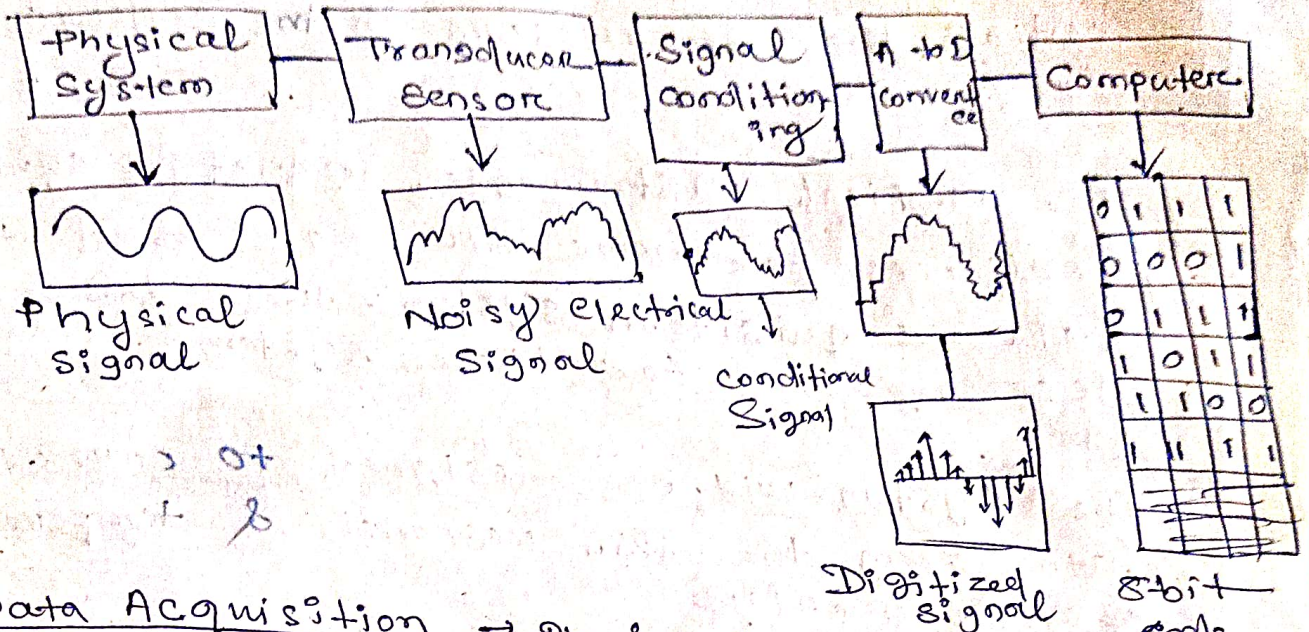 Physical
System
Transducer
Sensor
Signal
condition
ing
A to D
Conver
Computer
Physical
Signal
Noisy electrical
Signal
Conditional
Signal
0 1 1 1
0 0 0 1
0 1 1 1
1 0 1 1
1 1 0 0
1 11 1 1
Digitized
Signal
8 bit
Data Acquisition →